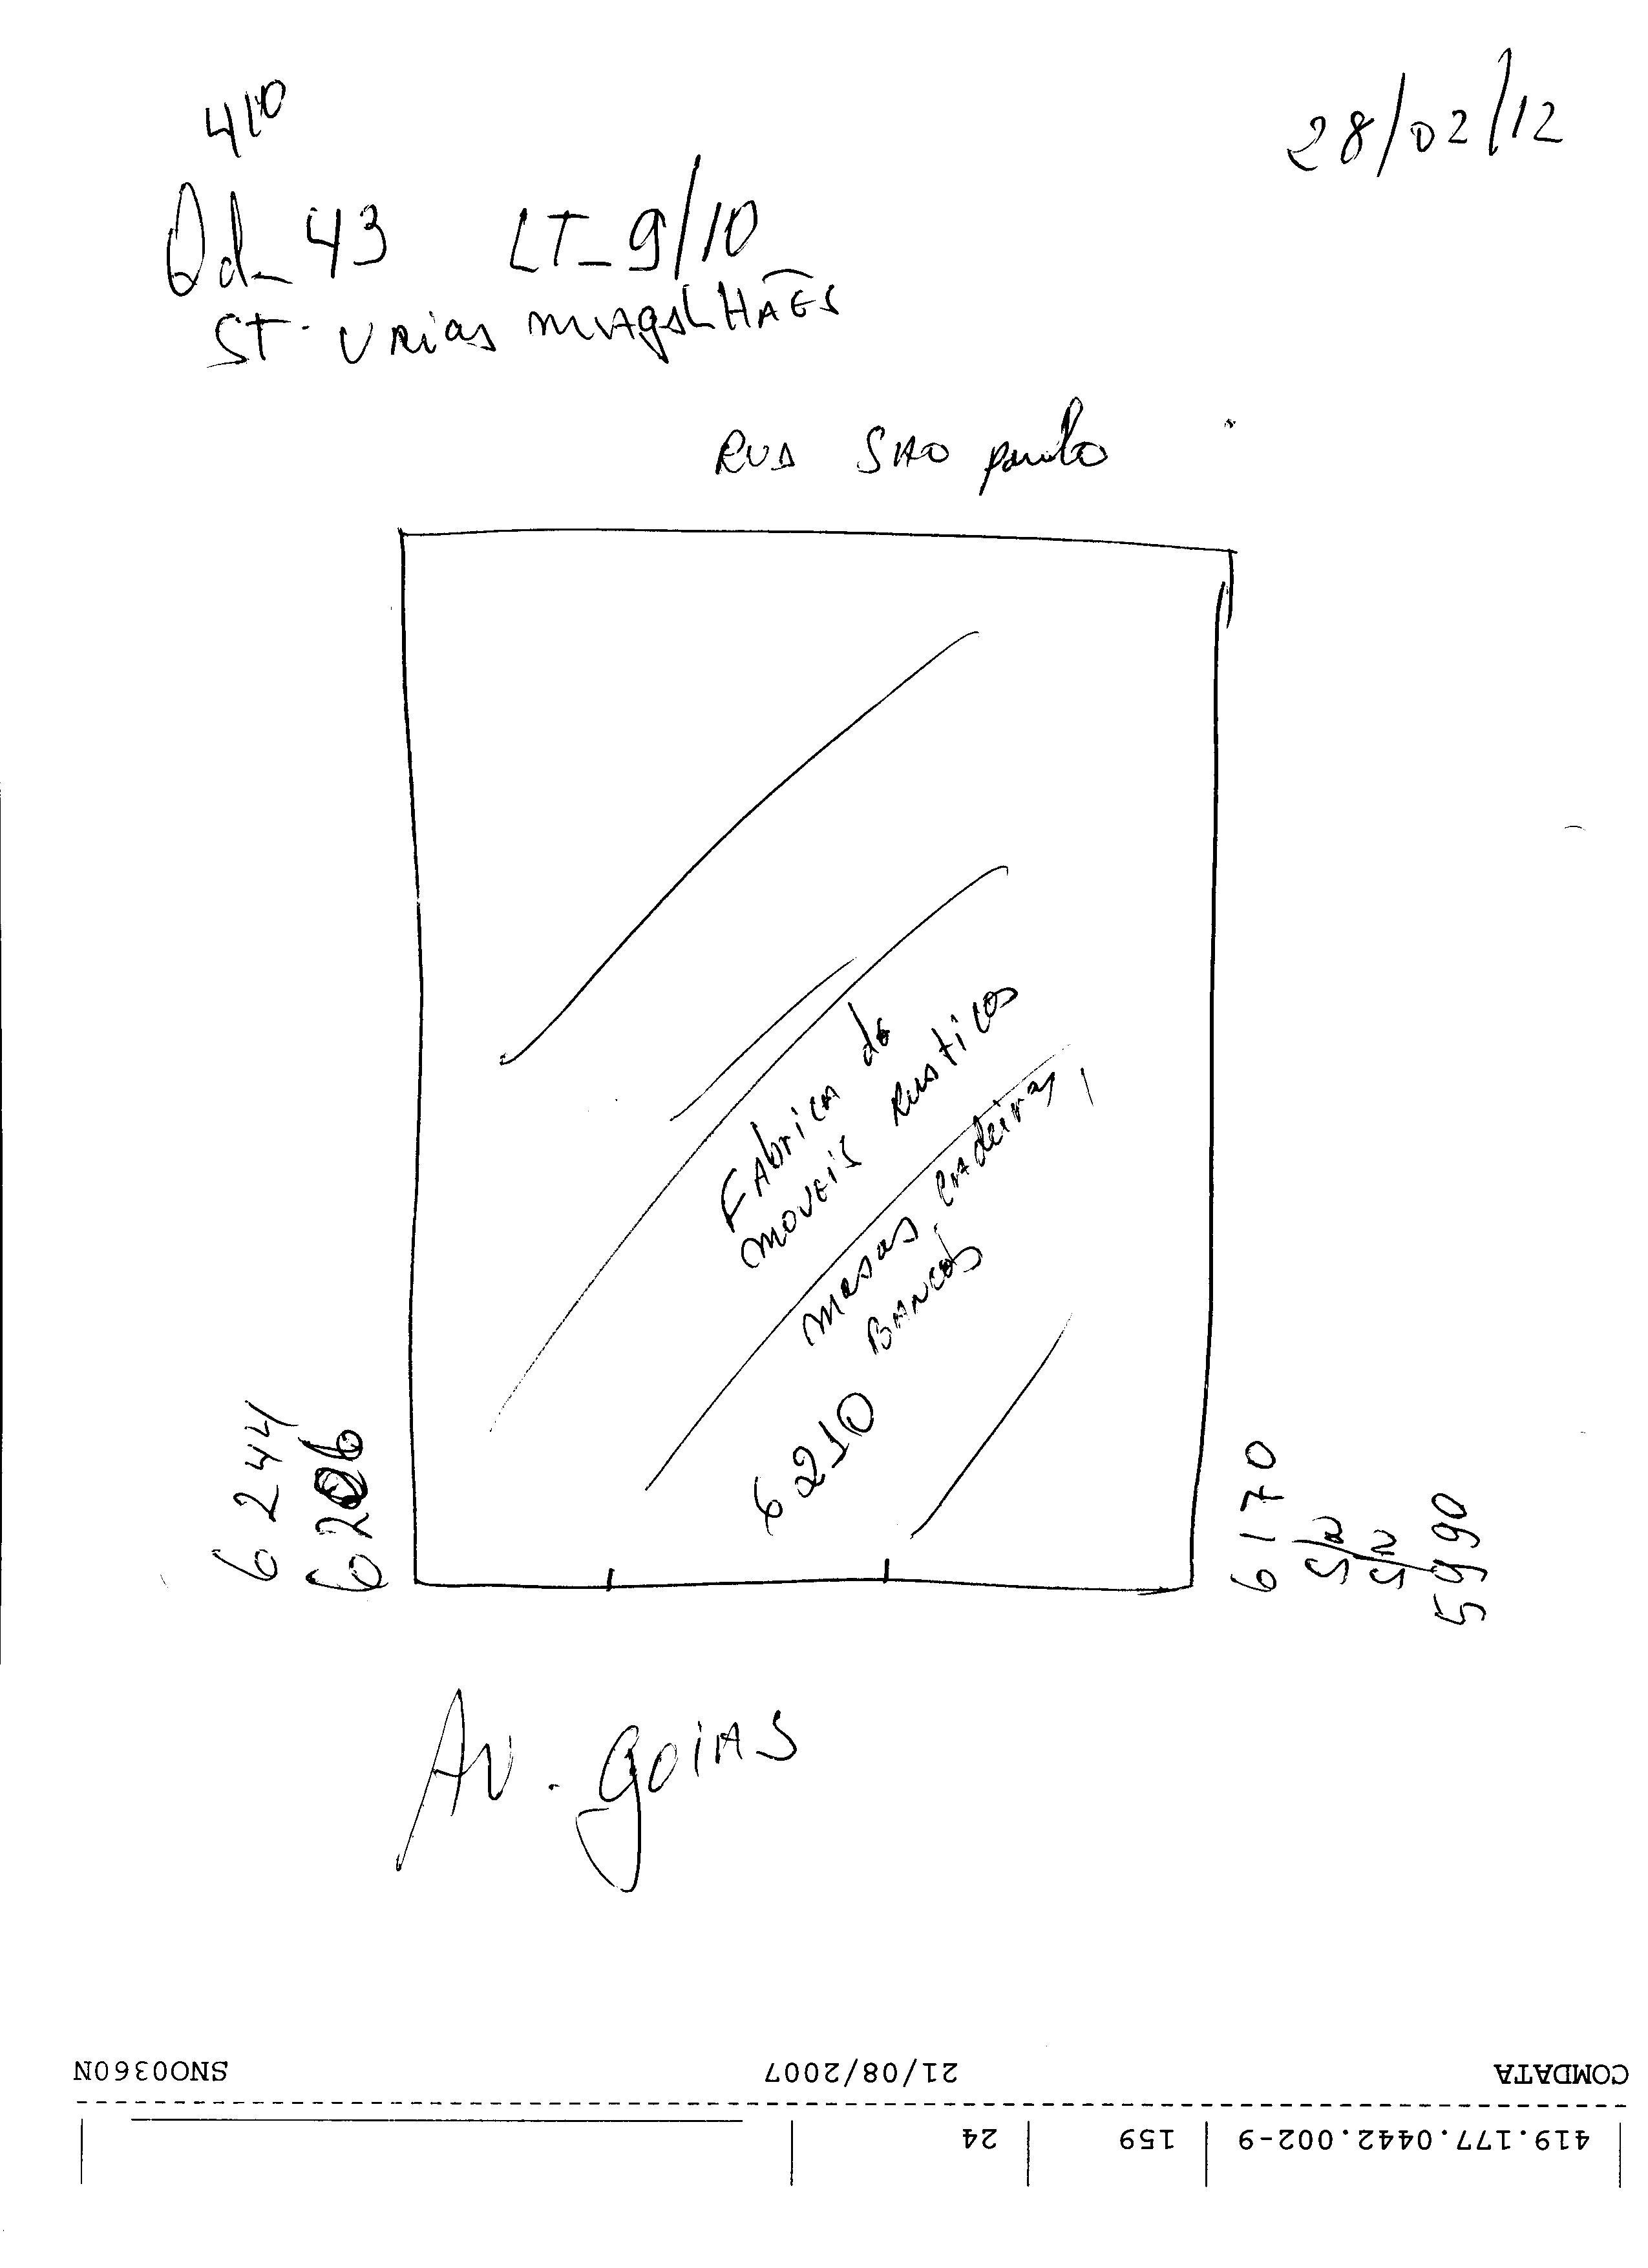 410
28/02/12
Qd_ 43 LT_9/10
ST. URias MAgALHÃES
RUA SAO paulo
FAbricA de
moveis Rusticos
mesas, CAdeiras,
BANCOS
6210
6244
6206
6170
S/N
S/N
5990
AV. goiAS
COMDATA 21/08/2007 SNO0360N
419.177.0442.002-9 159 24